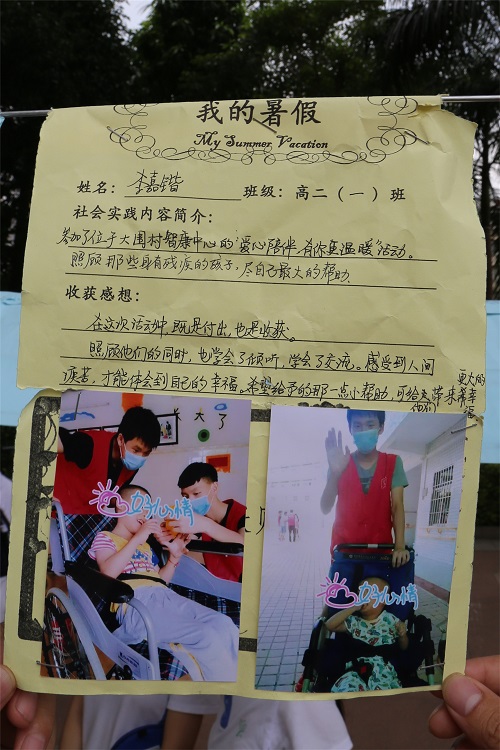 我的暑假
My Summer Vacation
姓名：李嘉锴 班级：高二（一）班
社会实践内容简介：
参加了位于大围村智康中心的“爱心陪伴,有你更温暖”活动。
照顾那些身有残疾的孩子，尽自己最大的帮助.
收获感想：
在这次活动中，既是付出，也是收获。
照顾他们的同时，也学会了倾听，学会了交流。感受到人间
疾苦，才能体会到自己的幸福。希望给予的那一点小帮助，可给他们带来更大的
幸福
长大了
好心情
好心情